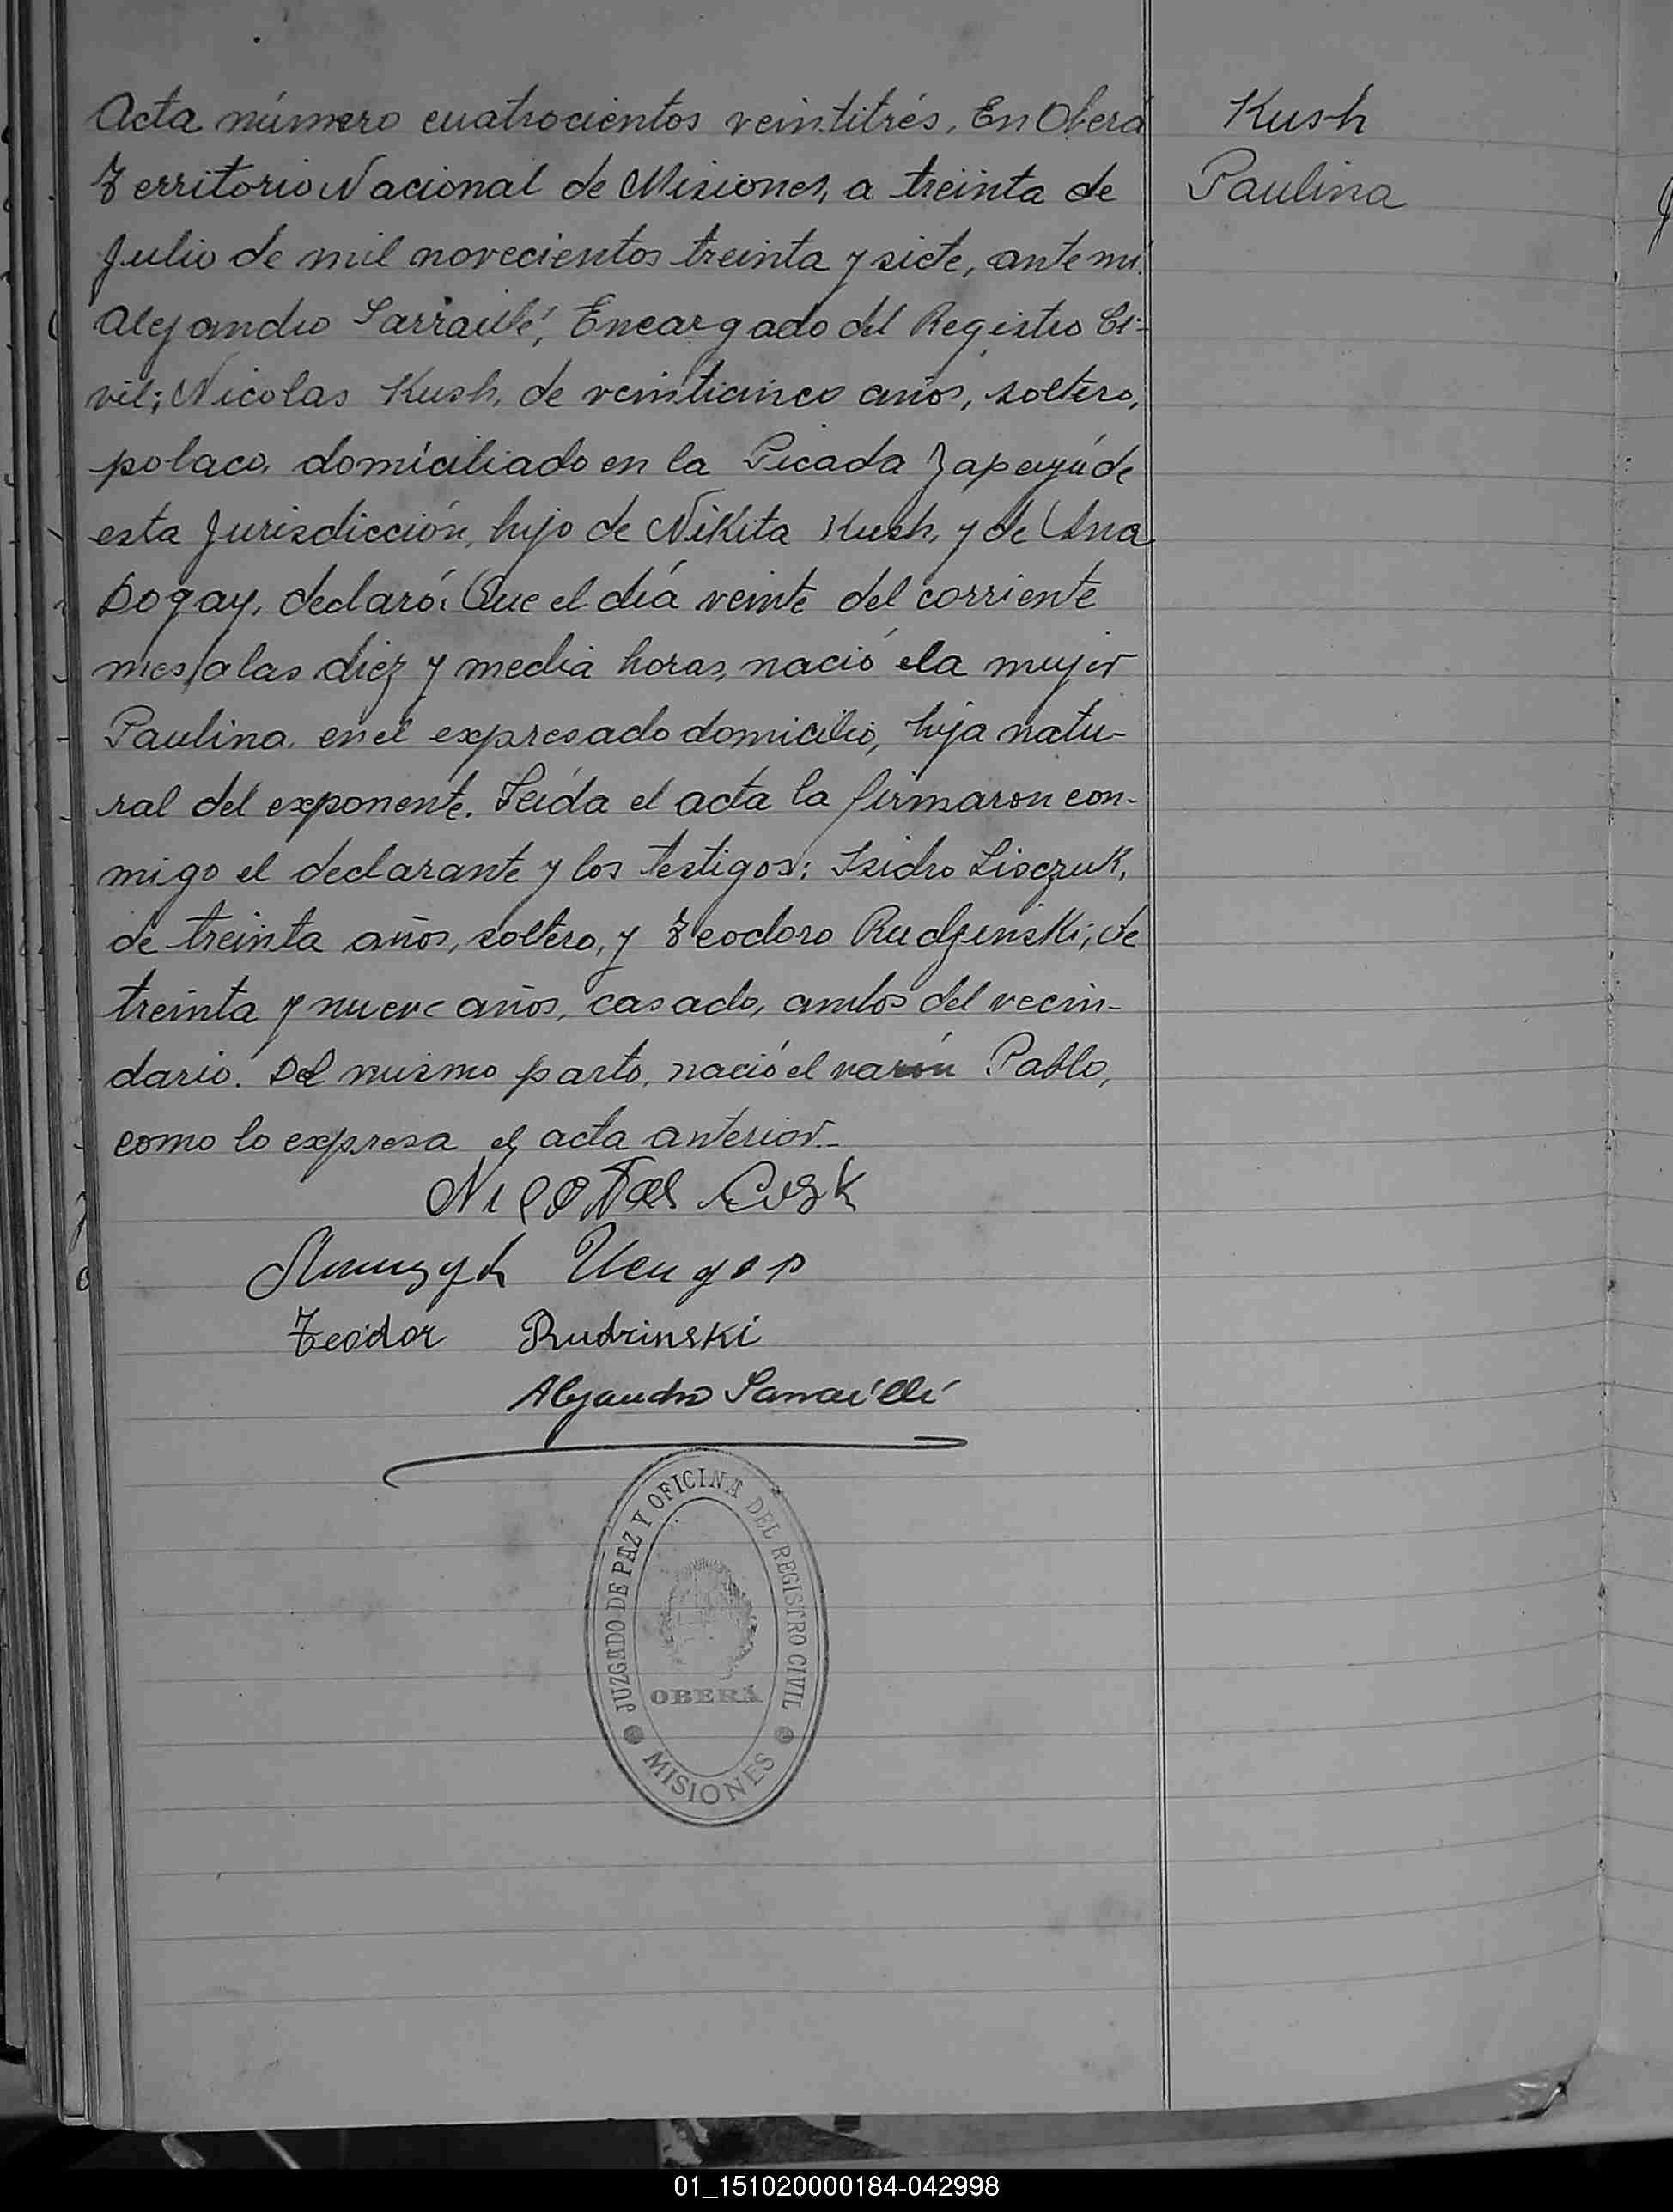 Kush
Paulina
Acta número cuatrocientos veintitrés. En Oberá
Territorio Nacional de Misiones, a treinta de
Julio de mil novecientos treinta y siete, ante mí,
Alejandro Sarraillé, Encargado del Registro Ci-
vil; Nicolas Kush, de veinticinco años, soltero,
polaco, domiciliado en la Picada Yapeyú de
esta Jurisdicción, hijo de Nikita Kush, y de Ana
Dogay, declaró: Que el día veinte del corriente
mes, a las diez y media horas, nació la mujer
Paulina, en el expresado domicilio, hija natu-
ral del exponente. Leída el acta la firmaron con-
migo el declarante y los testigos: Isidro Lisczuk,
de treinta años, soltero, y Teodoro Rudzenski; de
treinta y nueve años, casado, ambos del vecin-
dario. Del mismo parto, nació el varón Pablo,
como lo expresa el acta anterior.-
Teodor Rudzinski
Alejandro Sarraillé
JUZGADO DE PAZ Y OFICINA DEL REGISTRO CIVIL
OBERÁ
MISIONES
01_151020000184-042998